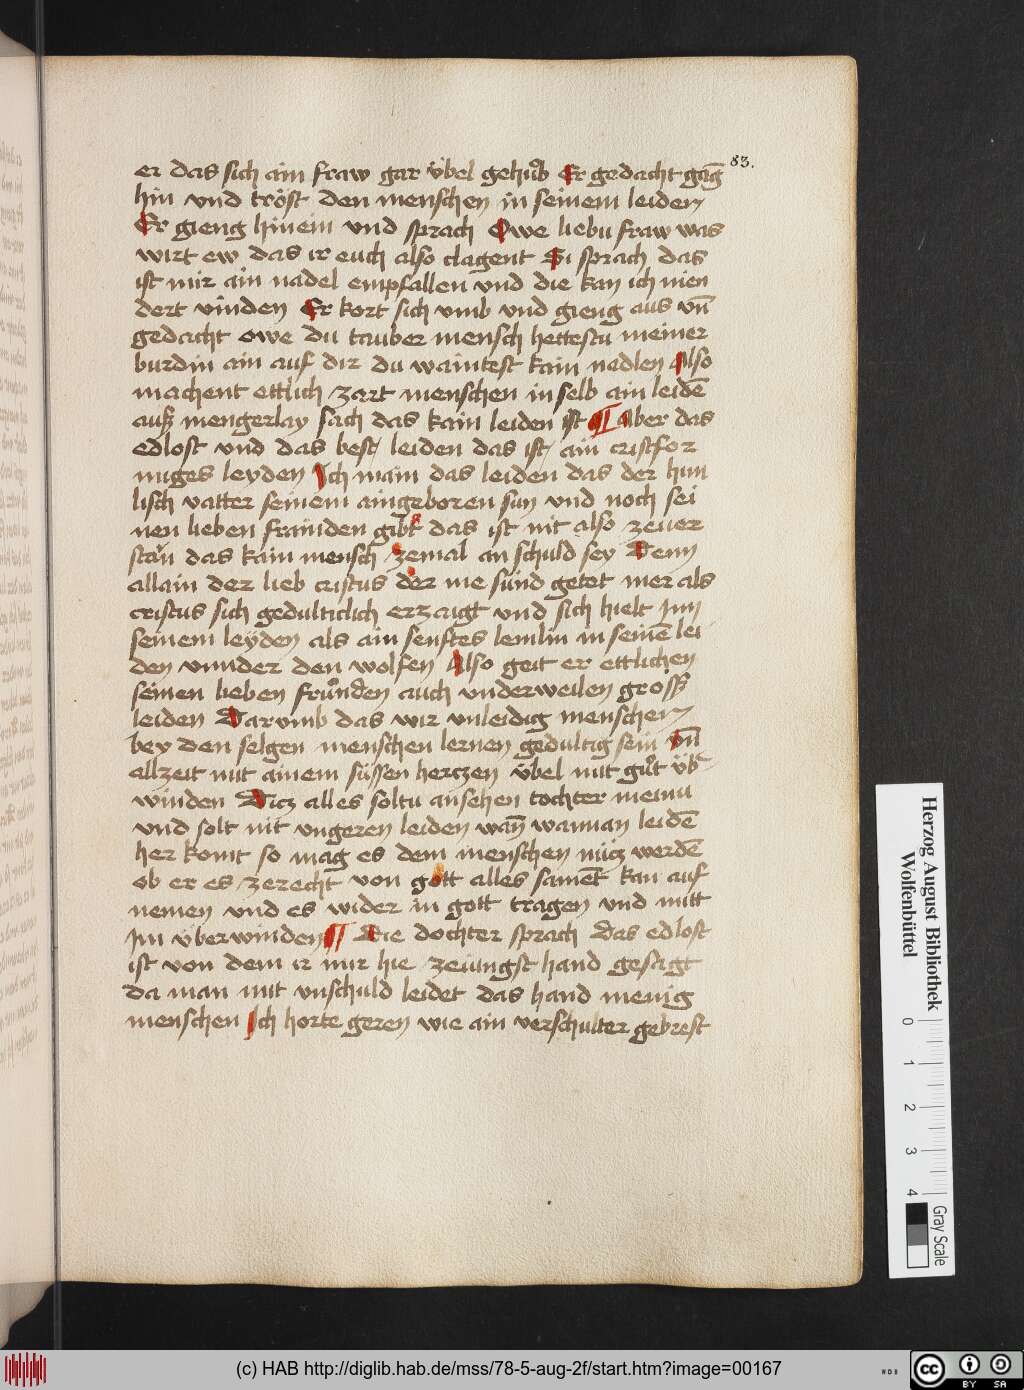 83.
er das sich ain fraw gar übel gehůb Er gedacht gāg
hin vnd tröst den menschen in seinem leiden
Er gieng hinein vnd sprach Owe liebu fraw was
wirt ew das ir euch also clagent Si sprach das
ist mir ain nadel empfallen vnd die kan ich nien
dert vinden Er kort sich vmb vnd gieng aus vn̄
gedacht owe du tauber mensch hettestu meiner
burdin ain auf dir du waintest kain nedlen Also
machent ettlich zart menschen in selb ain leidē
ausz mengerlay sach das kain leiden ist ¶ Aber das
edlost vnd das best leiden das ist ain cristfor
miges leyden Ich main das leiden das der him
lisch vatter seinem aingeboren sun vnd noch sei
nen lieben frainden gibt das ist nit also zeuer
stan das kain mensch zemal an schuld sey Denn
allain der lieb cristus der nie sünd getet mer als
cristus sich gedulticlich erzaigt vnd sich hielt Inn
seinem leyden als ain senftes lemlin in seinē lei
den vnnder den wolfen Also geit er ettlichen
seinen lieben frůnden auch vnderweilen gross
leiden Darvmb das wir vnleidig menschen
bey den selgen menschen lernen gedultig sein vn̄
allzeit mit ainem süssen herczen übel mit gůt üb
winden Dicz alles soltu ansehen tochter meinu
vnd solt nit vngeren leiden wan̄ wannan leidē
her komt so mag es dem menschen nücz werdē
ob er es zerecht von gott alles samēt kan auf
nemen vnd es wider in gott tragen vnd mitt
Im überwinden ¶ Die dochter sprach Das edlost
ist von dem ir mir hie zeiungst hand gesagt
da man mit vnschuld leidet das hand menig
menschen Ich horte geren wie ain verschulter gebrest
Herzog August Bibliothek
Wolfenbüttel
0 1 2 3 4
Gray Scale
(c) HAB http://diglib.hab.de/mss/78-5-aug-2f/start.htm?image=00167
WDB
cc BY SA